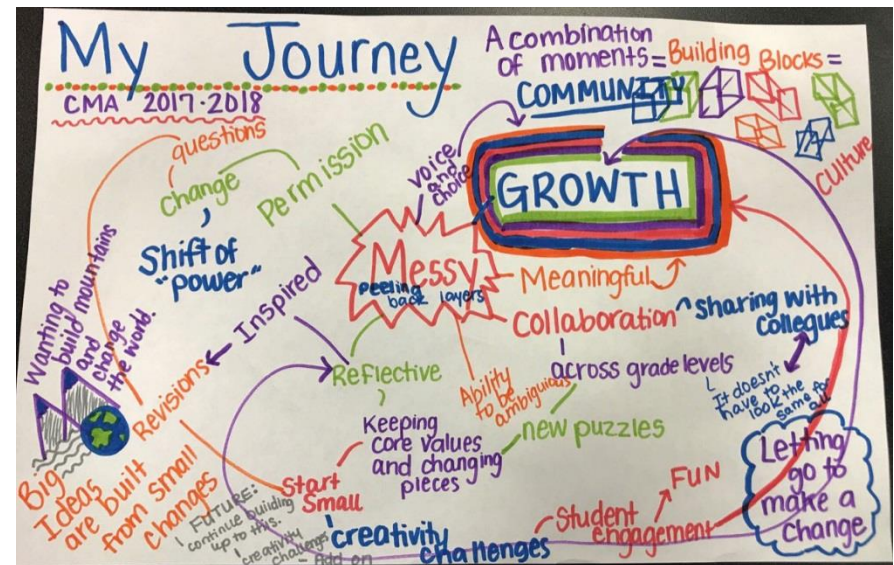 My Journey
CMA 2017-2018
A combination
of moments = Building Blocks =
COMMUNITY
Culture
questions
change
Permission
Shift of
"power"
voice
and
choice
GROWTH
Messy
peeling
back layers
Meaningful
Collaboration
sharing with
collegues
across grade levels
It doesn't
have to
look the
same for
all
Inspired
Reflective
Ability
to be
ambiguous
new puzzles
Keeping
core values
and changing
pieces
Wanting to
build mountains
and
change
the world.
Revisions
Big
Ideas
are built
from small
changes
Start
Small
FUTURE:
continue building
up to this.
creativity
challenges
- Add on
creativity
challenges
Student
engagement
FUN
Letting
go to
make a
Change